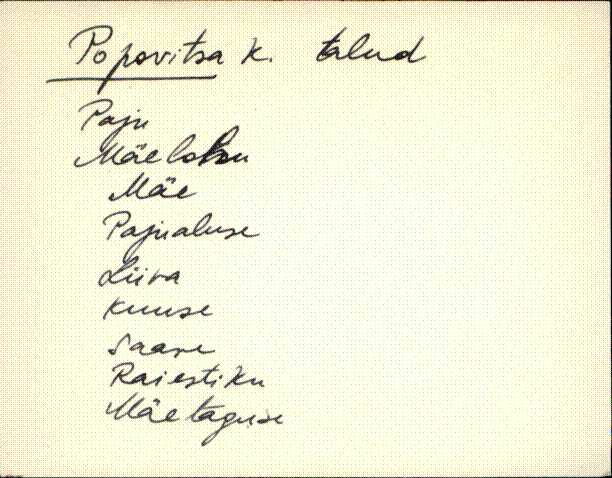 Popovitsa k. talud
Paju
Mäelohu
Mäe
Pajualuse
Liiva
Kuuse
Saare
Raiestiku
Mäetaguse